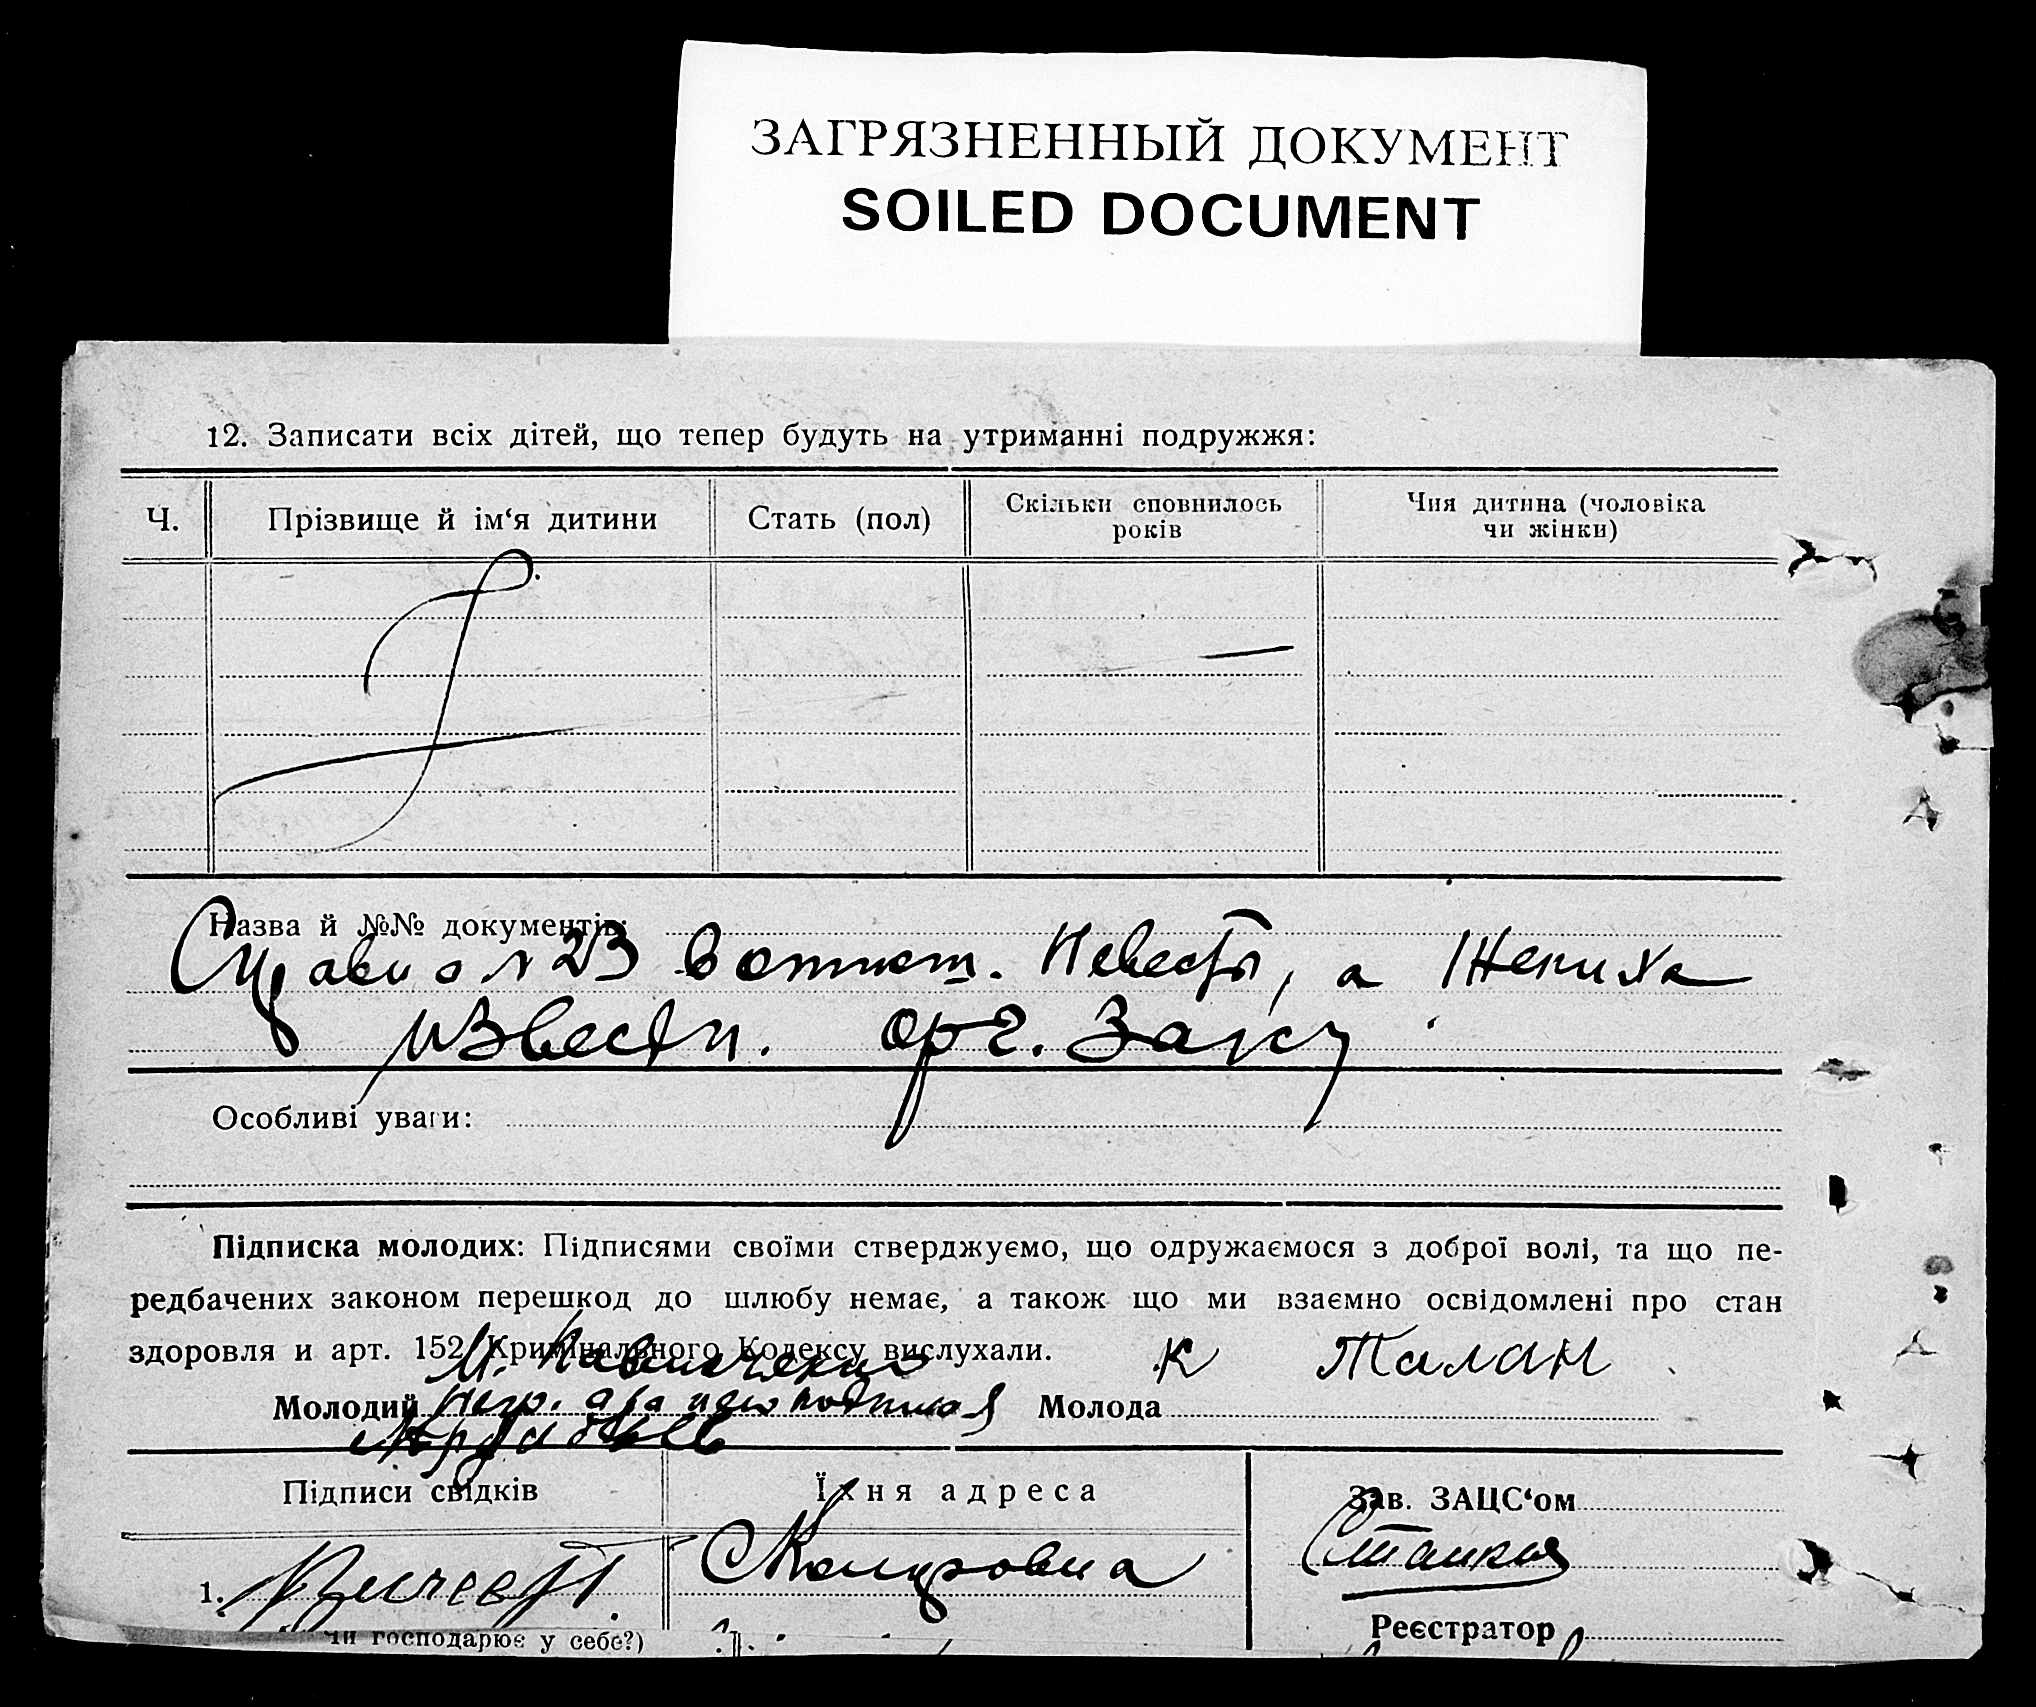 ЗАГРЯЗНЕННЫЙ ДОКУМЕНТ
SOILED DOCUMENT
12. Записати всіх дітей, що тепер будуть на утриманні подружжя:
Ч.
Прізвище й ім‘я дитини
Стать (пол)
Скільки сповнилось
років
Чия дитина (чоловіка
чи жінки)
Назва й №№ документів:
Справка № 23 Невесты, а Жениха
извести. орг. Загсу
Особливі уваги:
Підписка молодих: Підписями своїми стверджуємо, що одружаємося з доброї волі, та що пе-
редбачених законом перешкод до шлюбу немає, а також що ми взаємно освідомлені про стан
здоровля и арт. 152 Кримінального Кодексу вислухали.
К Талан
Молодий
Молода
Підписи свідків
Їхня адреса
Зав. ЗАЦС‘ом
1.
Реєстратор
чи господарює у себе?)